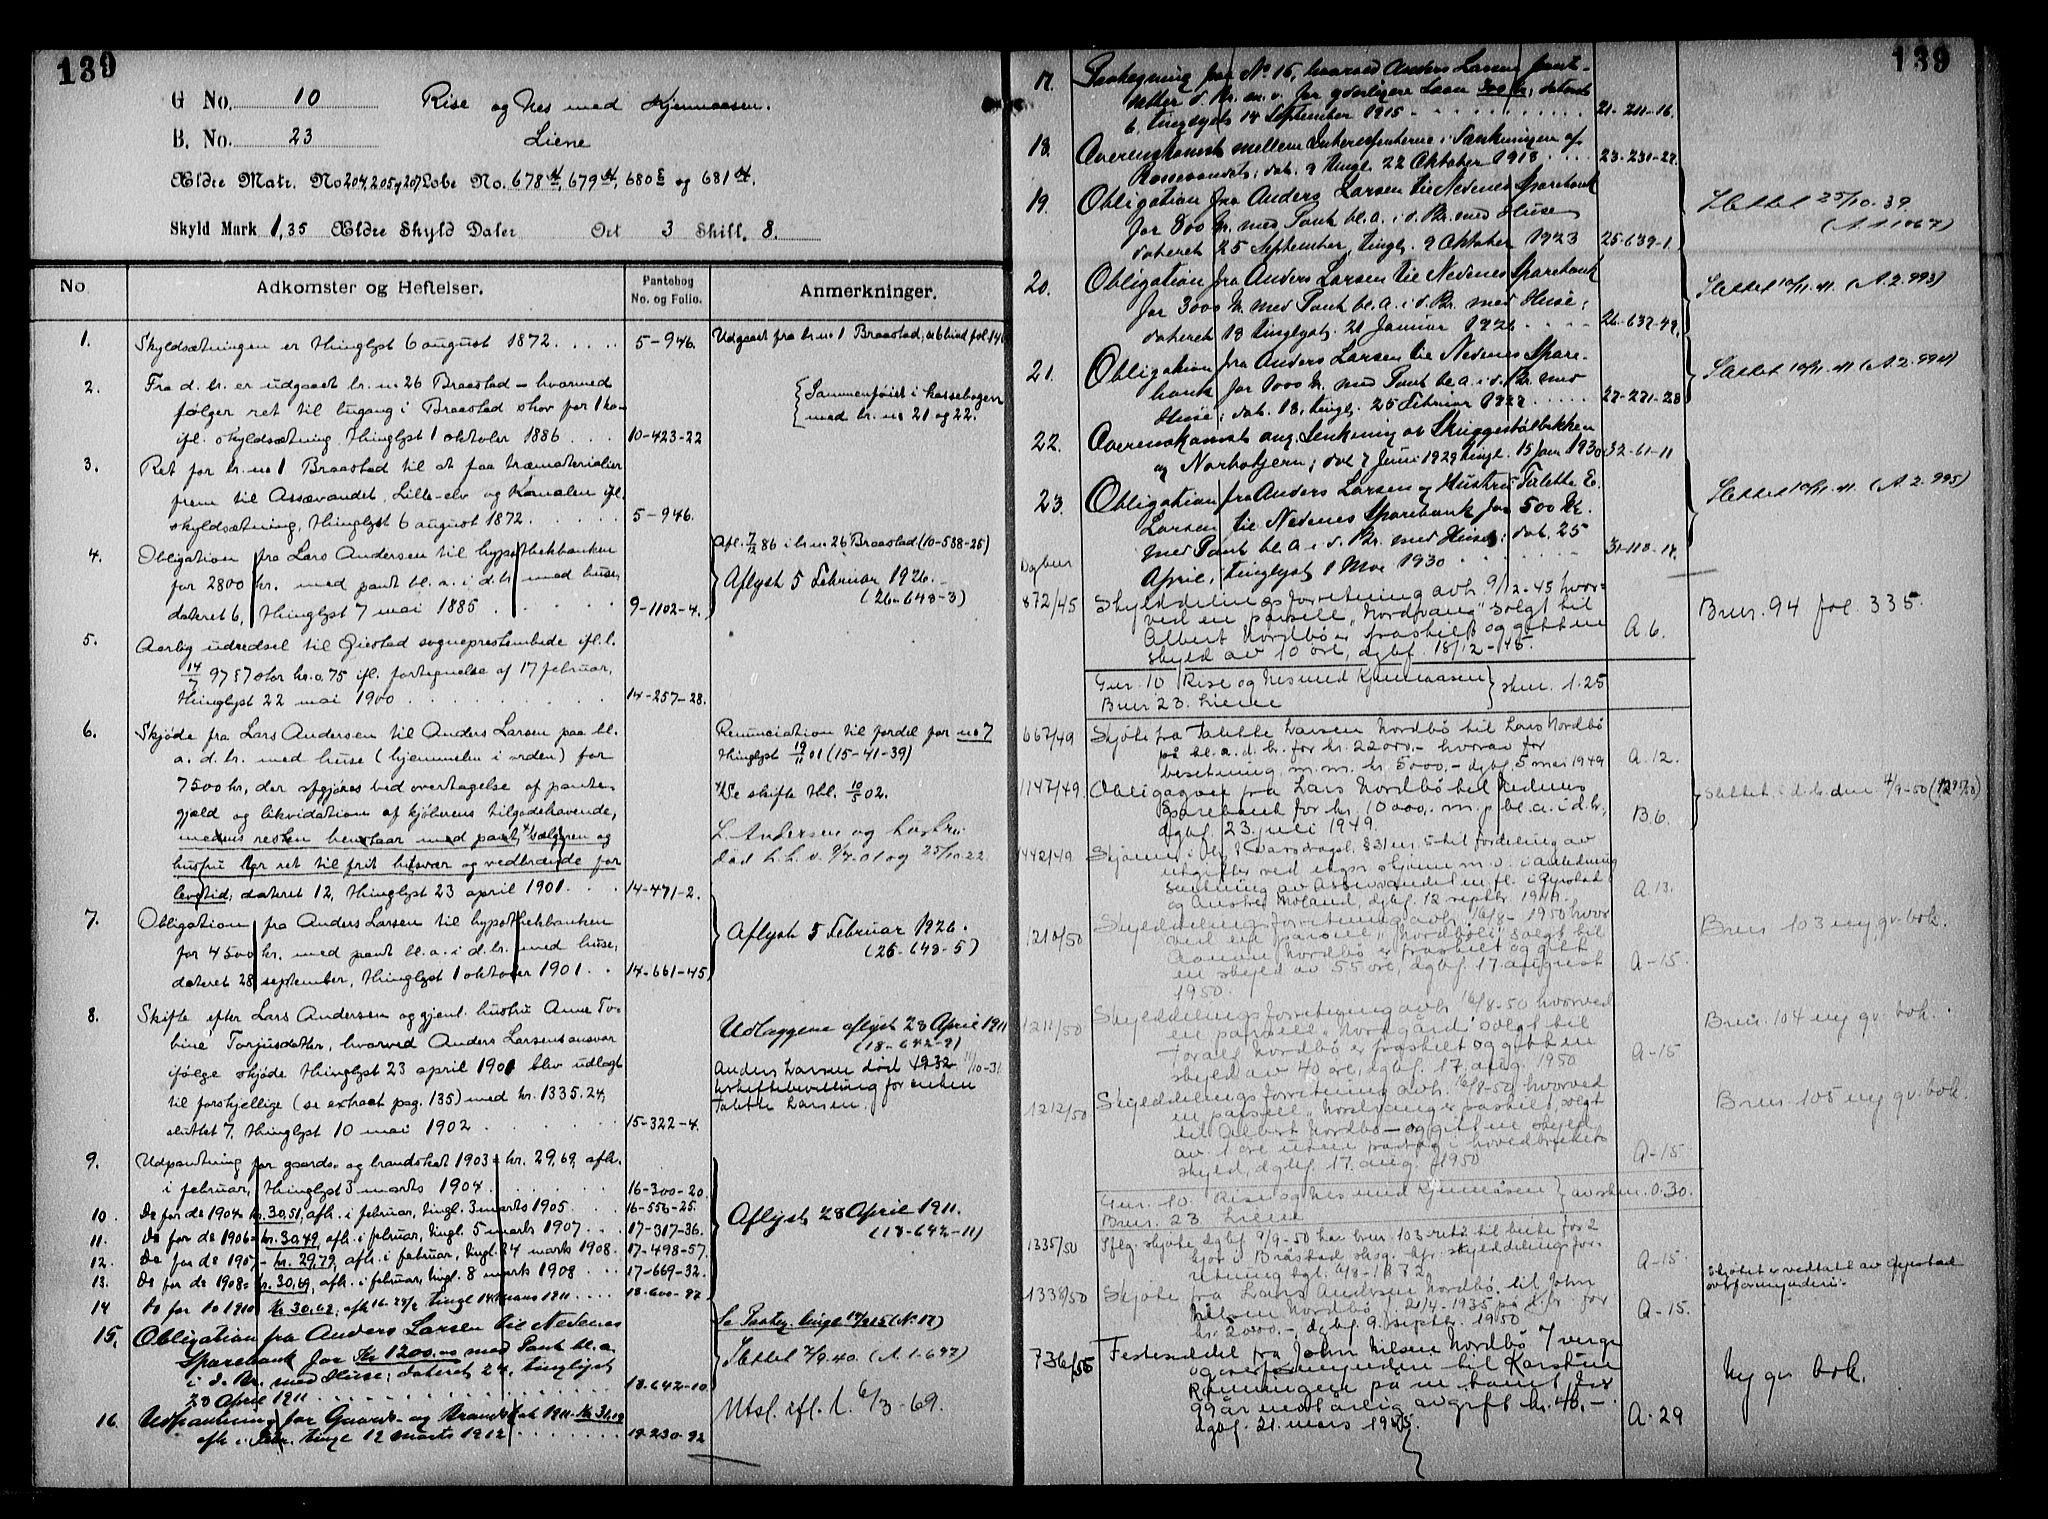 139
G No. 10 Rise og Nes med Kjennaasen.
B. No. 23 Liene
Ældre Matr. No 204, 205 og 207 Løbe No. 678, 679, 680 og 681
Skyld Mark 1,35 Ældre Skyld Daler Ort 3 Skill. 8.
No
Adkomster og Heftelser.
Pantebog
No. og Folio.
Anmerkninger.
1. Skyldsætningen er thinglyst 6 august 1872 . . . . . 5-946. Udgaaet fra br. no 1 Braastad,
2. Fra d. br. er udgaaet br. no 26 Braastad - hvormed
følger ret til tilgang i Braastad skov for 1 ko-
ifl. skyldsætning, thinglyst 1 oktober 1886 . . . 10-423-22
Sammenføiet i kassebogen
med br. no 21 og 22.
3. Ret for br. no 1 Braastad til at faa træmaterialier
frem til Assævandet, Lille-elv og Kanalen ifl.
skyldsætning, thinglyst 6 august 1872. . . . . 5-946.
4. Obligation fra Lars Andersen til hypothekbanken
for 2800 kr. med pant bl. a. i d. br. med huse,
dateret 6, thinglyst 7 mai 1885 . . . . . 9-1102-4.
Afl. 7/2 86 i br. no 26 Braastad (10-538-25)
Aflyst 5 Februar 1926.
(26-648-3)
5. Aarlig udredsel til Gjestad sogneprestembede ifl. l.
14/7 97 § 7 stor kr. 0,75 ifl. fortegnelse af 17 februar,
thinglyst 22 mai 1900 . . . . . 14-257-28.
6. Skjøde fra Lars Andersen til Anders Larsen paa bl.
a. d. br. med huse (hjemmelen i orden) for
7500 kr, der afgjøres ved overtagelse af pante-
gjæld og likvidation af kjøberens tilgodehavende,
medens resten henstaar med pant, sælgeren og
hustru har ret til frit husvær og vedbrænde for
levetid, dateret 12, thinglyst 23 april 1901. . . 14-471-2.
Renunciation til fordel for no 7
thinglyst 19/11 01 (15-41-39)
Se skifte thl. 10/5 02.
L. Andersen og hustru
død h. h. v. 9/7-01 og 25/10-22
7. Obligation fra Anders Larsen til hypothekbanken
for 4500 kr, med pant bl. a. i d. br. med huse,
dateret 28 september, thinglyst 1 oktober 1901 . . 14-661-45
Aflyst 5 Februar 1926.
(26-648-5)
8. Skifte efter Lars Andersen og gjenl. hustru Anne To-
bine Torjusdatter, hvorved Anders Larsens ansvar
ifølge skjøde thinglyst 23 april 1901 blev udlagt
til forskjellige (se extract pag. 135) med kr. 1335.24,
sluttet 7, thinglyst 10 mai 1902 . . . . . 15-322-4.
Udlæggene aflyst 28 April 1911
(18-642-9)
Anders Larsen død 1932
Uskiftebevilling for enken
Talette Larsen.
9. Udpantning for gaards- og brandskat 1903 = kr. 29,69, afh.
i februar, thinglyst 3 marts 1904. . . . . 16-300-20.
10. Do for do 1904 = kr. 30,51, afh. i februar, tingl. 3 marts 1905 . . 16-556-25.
11. Do for do 1906 = kr. 30,49, afh. i februar, tingl. 5 marts 1907 . . 17-317-36.
12. Do for do 1907 = kr. 29,79, afh. i februar, tingl. 24 marts 1908. 17-498-57.
13. Do for do 1908 = kr. 30,69, afh. i februar, tingl. 8 marts 1908 . . 17-669-32.
14 Do for do 1910 Kr. 30,62, afh. tingl. 14 mars 1911 . . . . 18-600-92
Aflyst 28 April 1911.
(18-642-11)
15. Obligation fra Anders Larsen til Nedenes
Sparebank for Kr 1200.00 med Pant bl. a.
i d. Br. med Huse; dateret 24, tinglyst
28 April 1911 . . . . . 18-642-10.
Se Paateg. tingl 14/9 15 (No 17)
Slettet 7/9.40. (A.1.697)
16. Udpantning for Gaards- og Brandskat 1911 Kr 31,10
afh. i Febr. tingl 12 Marts 1912 . . . . . 19-230-92
Utsl. efl. l. 6/3-69.
139
17. Paategning paa No 15, hvorved Anders Larsen pant-
setter d. Br. m. v. for yderligere Laan 300 kr; dateret
6, tinglyst 14 September 1915 . . . . . 21-211-16.
18. Overenskomst mellem Interessenterne i Senkningen af
Rossevandet; dat. 9 tingl. 22 Oktober 1918 . . . 23-231-27.
19. Obligation fra Anders Larsen til Nedenes Sparebank
for 800 kr. med Pant bl. a. i d. Br. med Huse
dateret 25 September, tingl. 9 Oktober 1923 25-639-1.
Slettet 25/10.39
(A.1.1067)
20. Obligation fra Anders Larsen til Nedenes Sparebank
for 3000 kr. med Pant bl. a. i d. Br. med Huse;
dateret 18 tinglyst 21 Januar 1926 . . . . 26-637-49.
Slettet 10/11.41. (A.2.993)
21. Obligation fra Anders Larsen til Nedenes Spare-
bank for 1000 kr. med Pant bl. a. i d. Br. med
Huse; dat. 18, tingl. 25 Februar 1927 . . . . . 27-271-28
Slettet 10/11.41 (A.2.994)
22. Overenskomst ang. Senkning av Skuggestølbekken
og Norbøtjern; dat 7 Juni 1929 tingl. 15 jan 1930 32-61-11
23. Obligation fra Anders Larsen og Hustru Talette E.
Larsen til Nedenes Sparebank for 500 Kr.
med Pant bl. a. i d. Br. med Huse; dat. 25
April, tinglyst 1 Mai 1930 . . . . . 31-118-14.
Slettet 10/11.41. (A.2.995)
Dagbun
872/45 Skylddelingsforretning avh. 9/12-45 hvor-
ved en parsell "Nordvang" solgt til
Albert Nordbø er fraskilt og gitt en
skyld av 10 øre, dgbf. 18/12-145. A. 6.
Brnr. 94 fol. 335.
Gnr. 10 Rise og Nes med Kjennaasen
Bnr 23. Liene } skm. 1.25
667/49 Skjøte fra Talette Larsen Nordbø til Lars Nordbø
på bl. a. d. br. for kr. 22000,- hvorav for
besetning m. m. kr. 5000,- dgbf. 5 mai 1949 A. 12.
1147/49. Obligasjon fra Lars Nordbø til Nedenes
Sparebank for kr. 10000,- m. p. bl. a. i d. br,
dgbf. 23. juli 1949. B. 6.
Slettet i d. br. den 4/9-50
1442/49 Skjønn i flg. Vassdragsl. § 31 nr. 5 til fordeling av
utgifter ved utgør skjønn m. v. i anledning
senkning av Assævandet m. fl. i Gjerstad
og Austre Moland, dgbf. 12 septbr. 1949. A. 13.
1210/50 Skylddelingsforretning avh. 16/8-1950 hvor
ved en parsell "Nordbøli" solgt til
Nordbø er fraskilt og gitt
en skyld av 55 øre, dgbf. 17. august
1950. A-15.
Bnr. 103 ny gr. bok.
1211/50 Skylddelingsforretning avh. 16/8-50 hvorved
en parsell "Norsgård" solgt til
Toralf Nordbø er fraskilt og gitt en
skyld av 40 øre, dgbf. 17. aug. 1950 A-15
Bnr. 104 ny gr. bok.
1212/50 Skylddelingsforretning avh. 16/8-50 hvorved
en parsell er fraskilt, solgt
til Albert Nordbø - og gitt en skyld
av 1 øre uten fradrag i hovedbrukets
skyld, dgbf. 17. aug. 1950 A-15.
Bnr. 105 ny gr. bok.
Gnr. 10. Rise og Nes med Kjennåsen
Bnr. 23. Liene } av skm. 0.30.
1335/50 Iflg. skjøte dgbf. 9/9-50 har bnr. 103 rett til beite for 2
kjør i Bråstad skog. kfr. skylddelingsfor-
retning tgl. 6/8-1872. A-15
1338/50 Skjøte fra Lars Andersen Nordbø til John
Nilsen Nordbø f. 21/4-1935 på d. br. for
kr. 2000.-, dgbf. 9. septbr. 1950 A-15.
Skjøtet er vedtatt av Gjerstad
overformynderi.
736/55 Festeseddel fra John Nilsen Nordbø v/ verge
og overformynderi til Karsten
Rønningen på en tomt for
99 år mot årlig avgift kr. 40,-
dgbf. 21. mars 1955. A. 29
Ny gr. bok.